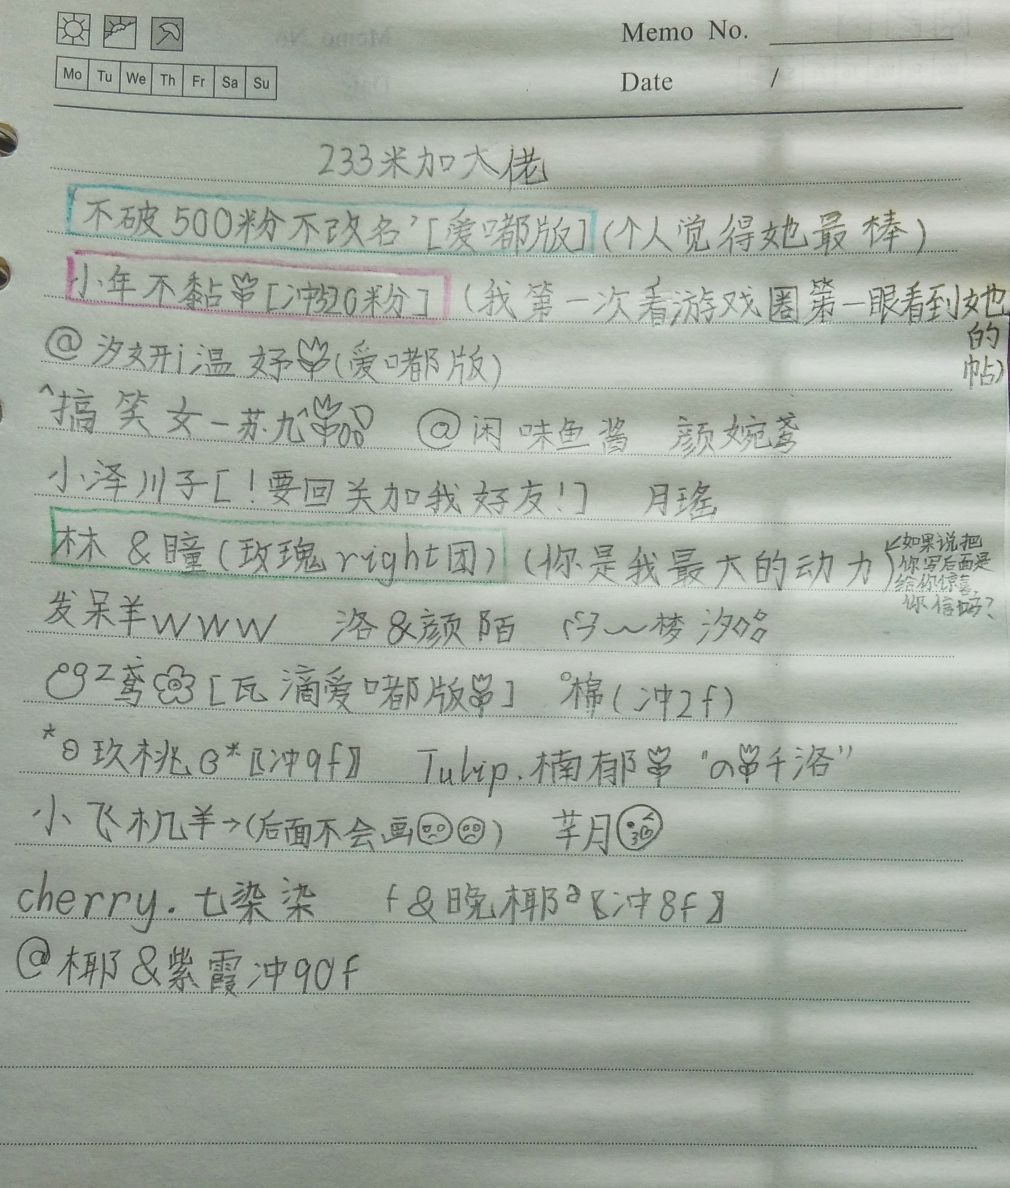 Memo No.
Mo Tu We Th Fr Sa Su
Date /
233米加大佬
'不破500粉不改名'[爱嘟版](个人觉得她最棒)
小年不黏[冲320粉](我第一次看游戏圈第一眼看到她的帖)
@汐妍i温妤(爱嘟版)
^搞笑女-苏九^ @闲味鱼酱 颜婉鸢
小泽川子[!要回关加我好友!] 月瑤
林&瞳(玫瑰right团)(你是我最大的动力)
↙如果说把
你写后面是
给你惊喜,
你信吗?
发呆羊www 洛&颜陌 梦汐哈
鸢[瓦滴爱嘟版] °棉(冲2f)
玖桃【冲9f】 Tulip.楠郁 “千洛”
小飞机羊→(后面不会画) 芊月
cherry.七染染 f&晚椰【冲8f】
@椰&紫霞冲90f